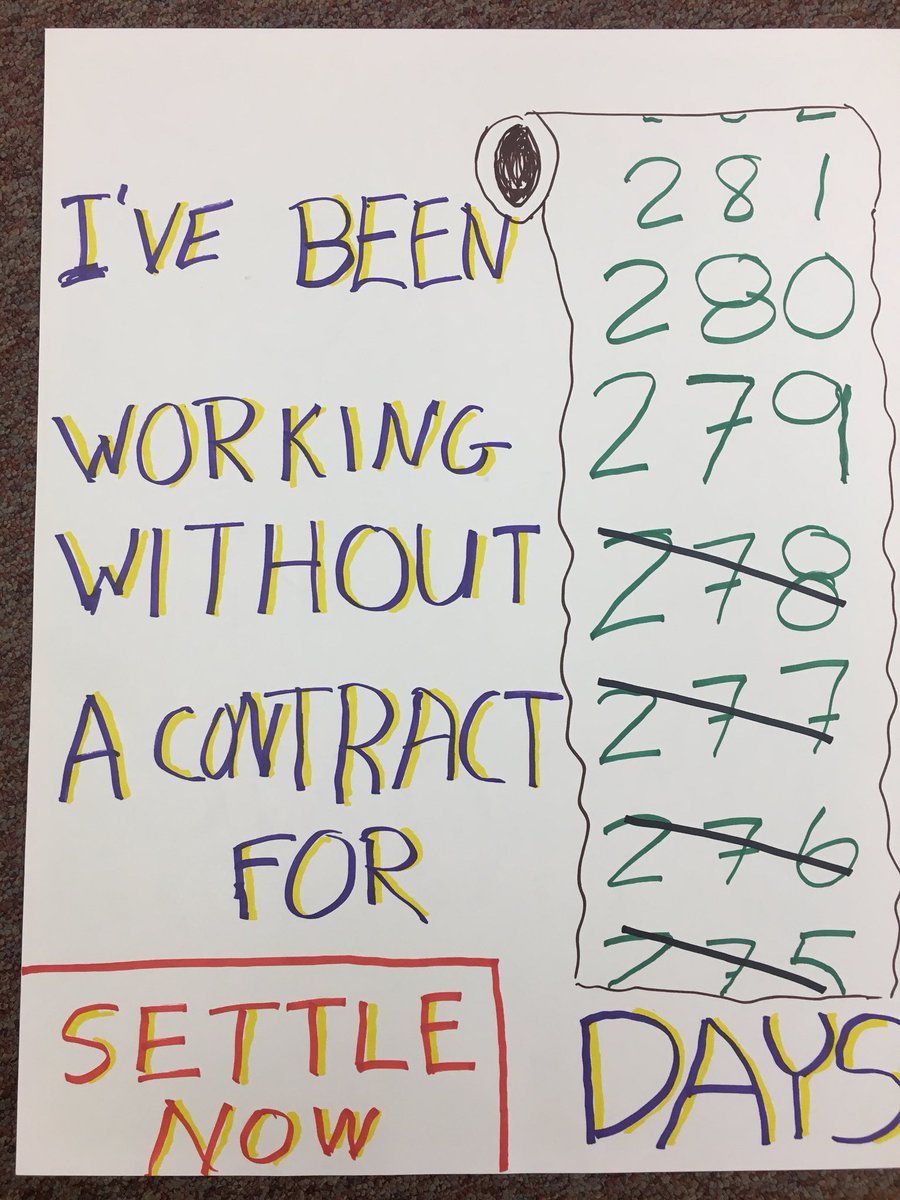 I'VE BEEN
WORKING
WITHOUT
A CONTRACT
FOR
281
280
279
278
277
276
275
DAYS
SETTLE
NOW